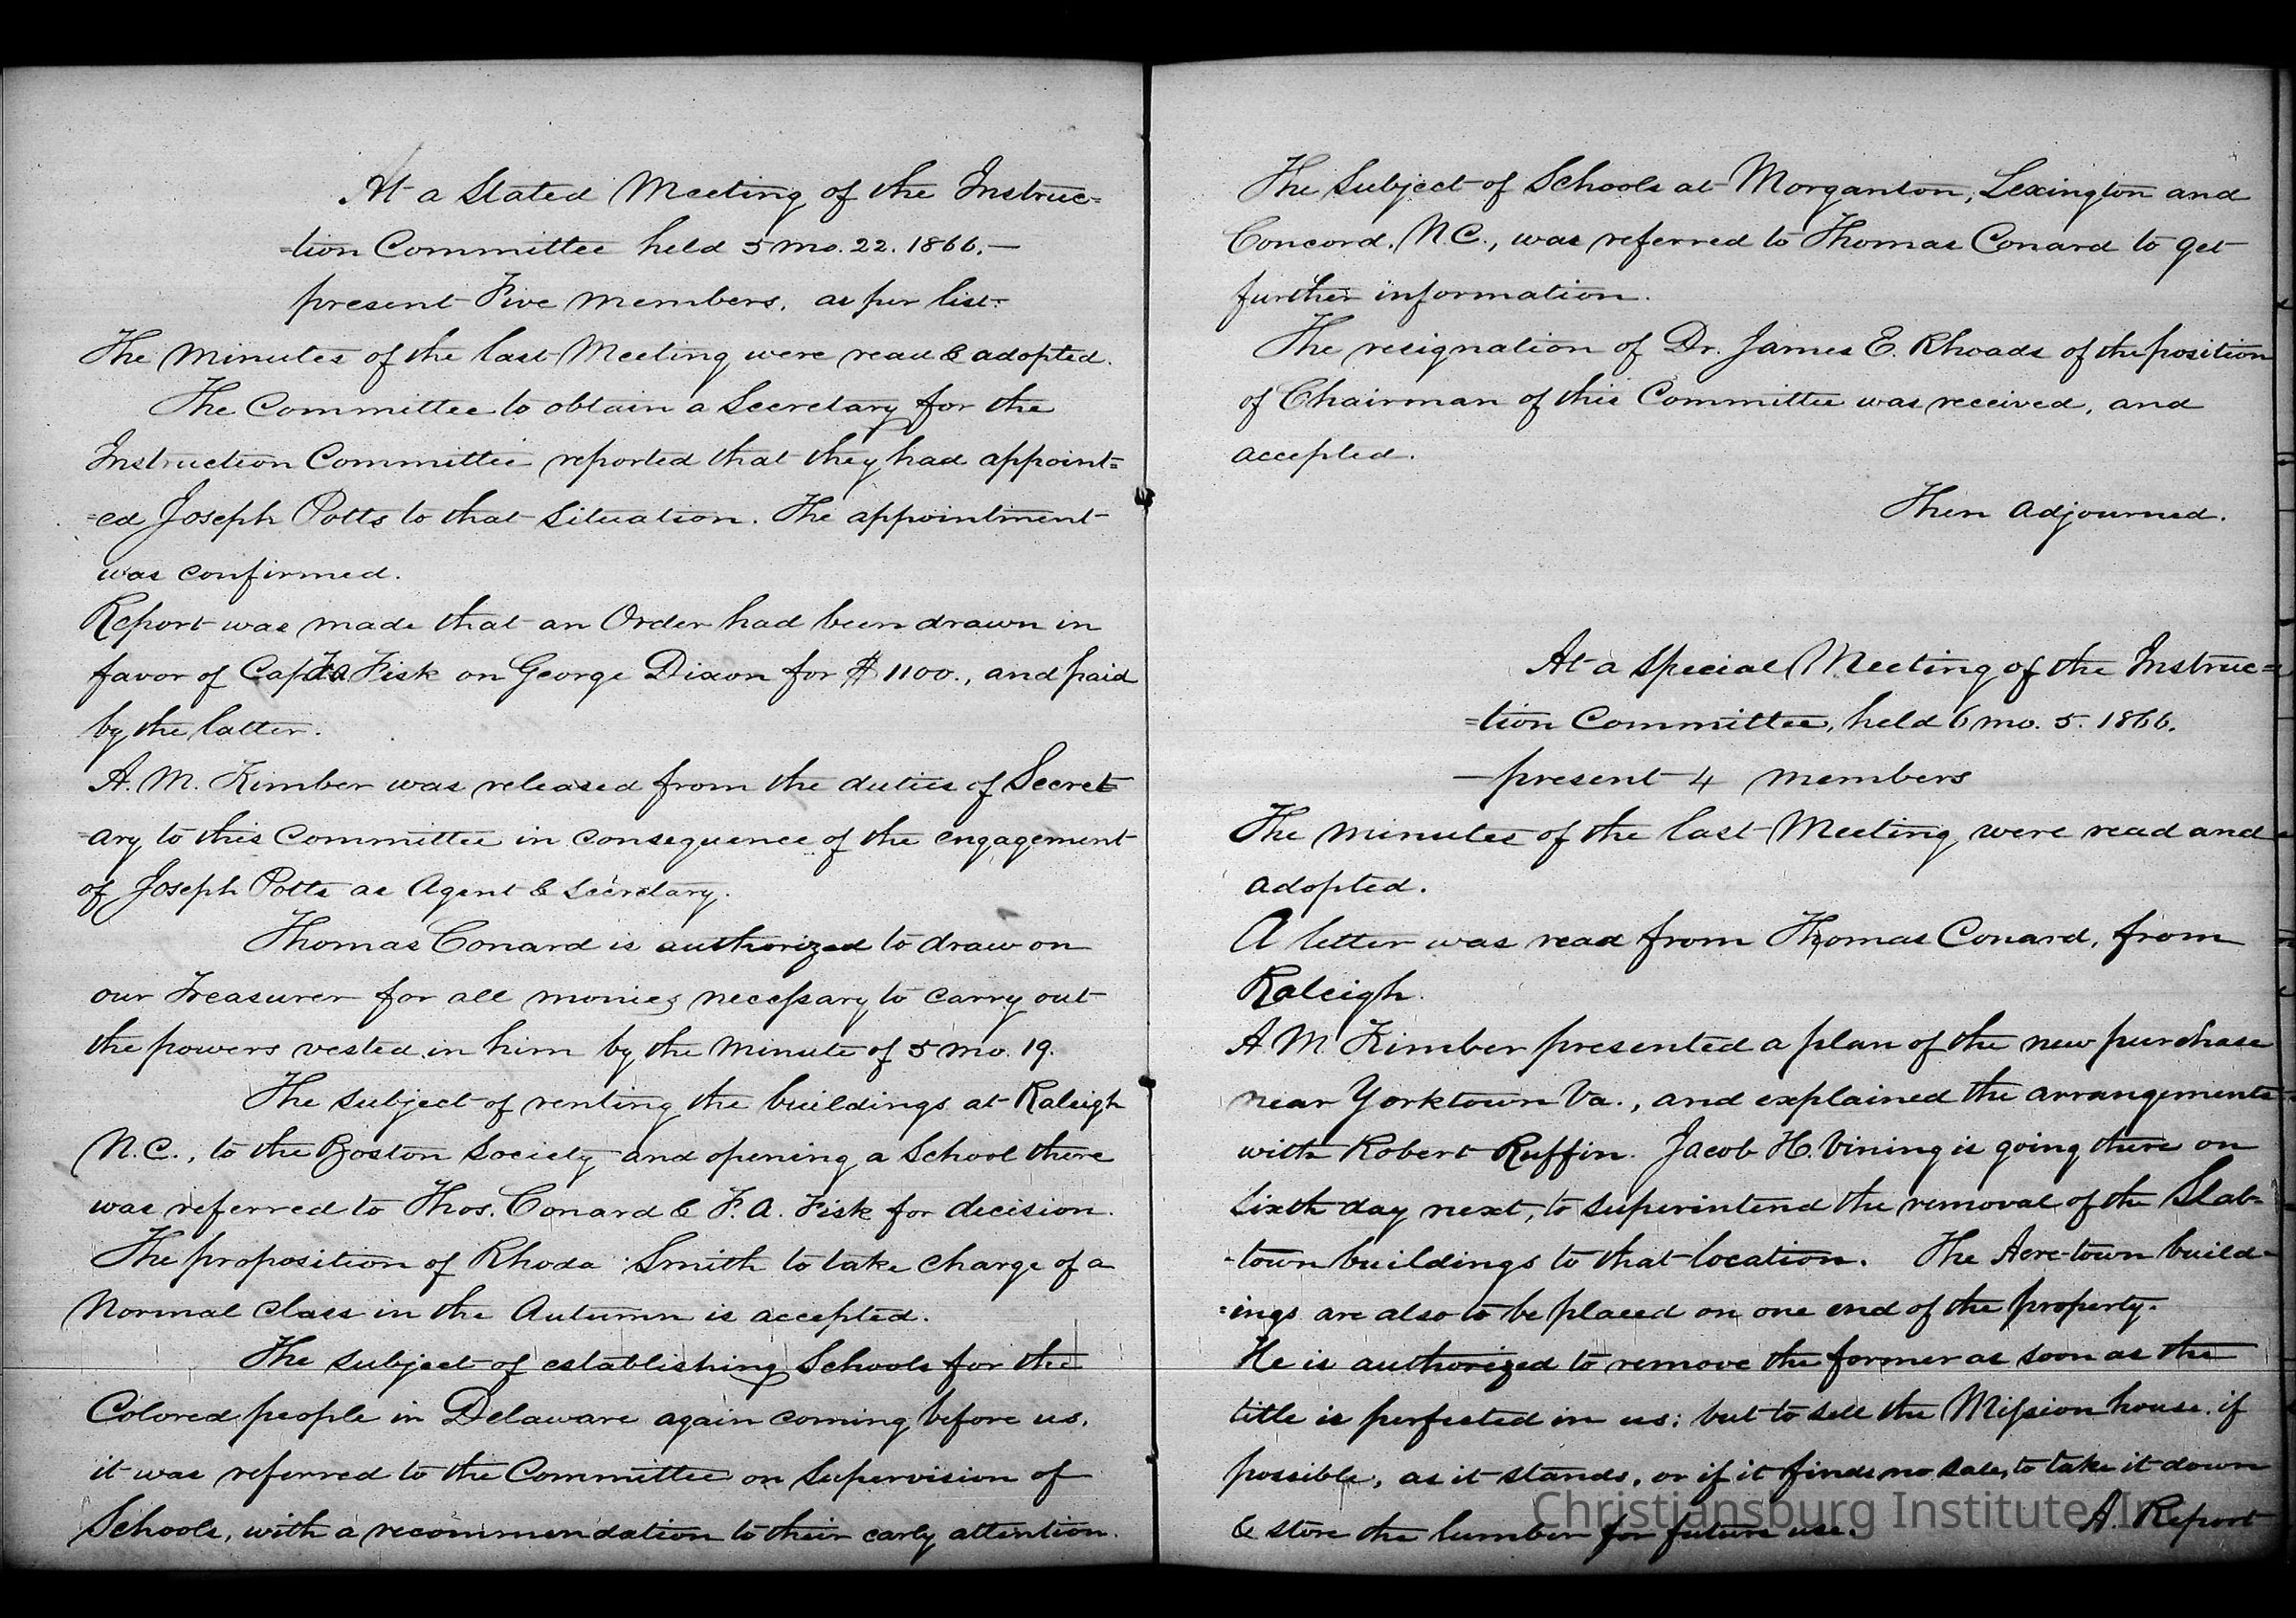 At a Stated Meeting of the Instruc=
=tion Committee held 5 mo. 22. 1866.—
present Five members, as per list.
The minutes of the last Meeting were read & adopted.
The Committee to obtain a Secretary for the
Instruction Committee reported that they had appoint=
=ed Joseph Potts to that situation. The appointment
was confirmed.
Report was made that an Order had been drawn in
favor of Fisk on George Dixon for $1100., and paid
by the latter.
A. M. Kimber was released from the duties of Secret=
=ary to this Committee in consequence of the engagement
of Joseph Potts as Agent & Secretary.
Thomas Conard is authorized to draw on
our Treasurer for all monies necessary to carry out
the powers vested in him by the minute of 5 mo. 19.
The subject of renting the buildings at Raleigh
N.C., to the Boston Society and opening a School there
was referred to Thos. Conard & F. A. Fisk for decision.
The proposition of Rhoda Smith to take charge of a
Normal class in the Autumn is accepted.
The subject of establishing Schools for the
Colored people in Delaware again coming before us,
it was referred to the Committee on Supervision of
Schools, with a recommendation to their early attention.
The subject of Schools at Morganton, Lexington and
Concord, N.C., was referred to Thomas Conard to get
further information.
The resignation of Dr. James E. Rhoads of the position
of Chairman of this Committee was received, and
accepted.
Then adjourned.
At a special Meeting of the Instruc=
=tion Committee, held 6 mo. 5. 1866.
— present 4 members
The minutes of the last Meeting were read and
adopted.
A letter was read from Thomas Conard, from
Raleigh.
A M. Kimber presented a plan of the new purchase
near Yorktown Va., and explained the arrangements
with Robert Ruffin. Jacob H. Vining is going there on
sixth day next, to superintend the removal of the Slab-
-town buildings to that location. The Acre-town build-
=ings are also to be placed on one end of the property.
He is authorized to remove the former as soon as the
title is perfected in us; but to sell the Mission house, if
possible, as it stands, or if it finds no sale, to take it down
& store the lumber for future use. A. Report
Christiansburg Institute, In